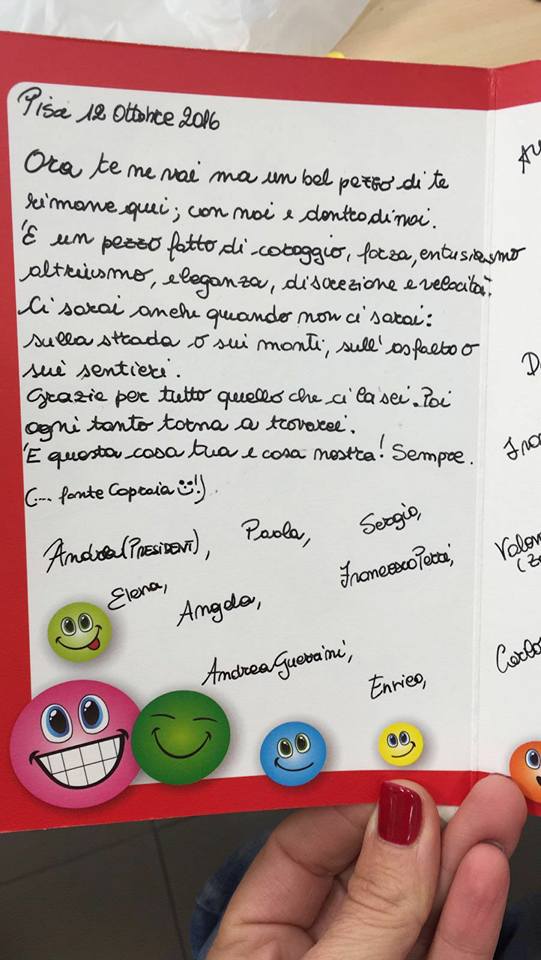 Pisa 12 Ottobre 2016
Ora te ne vai ma un bel pezzo di te
rimane qui; con noi e dentro di noi.
È un pezzo fatto di coraggio, forza, entusiasmo
altruismo, eleganza, discrezione e velocità.
Ci sarai anche quando non ci sarai:
sulla strada o sui monti, sull'asfalto o
sui sentieri.
Grazie per tutto quello che ci lasci. Poi
ogni tanto torna a trovarci.
È questa cosa tua e cosa nostra! Sempre.
(... fonte Capraia !).
Andrea (PRESIDENT), Paola, Sergio,
Elena, Angela, Francesco Petri,
Andrea Guerrini, Enrico,